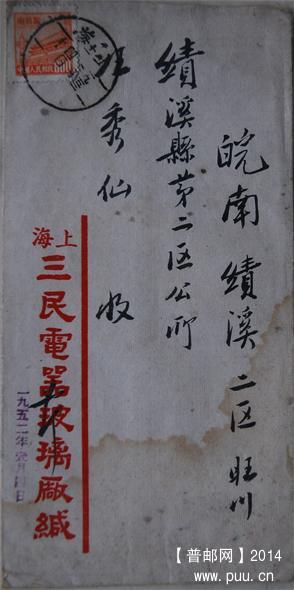 皖南績溪二区旺川
績溪縣第二区公所
秀仙 收
上海
三民電器玻璃廠緘
一九五二年 月 日
中国人民邮政
800
【普邮网】2014
www.puu.cn